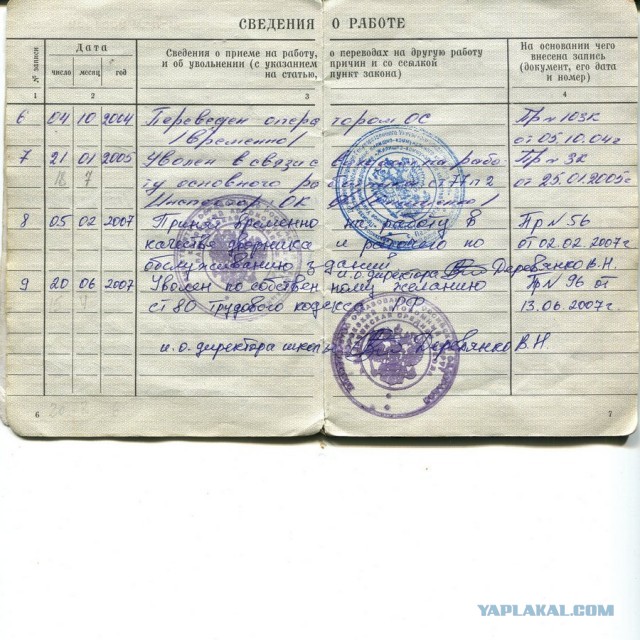 СВЕДЕНИЯ О РАБОТЕ
№ записи
Дата
число месяц год
Сведения о приеме на работу, о переводах на другую работу
и об увольнении (с указанием причин и со ссылкой
на статью, пункт закона)
На основании чего
внесена запись
(документ, его дата
и номер)
1 2 3 4
6 04 10 2004 Переведен оператором ОС Пр№103К
/временно/ от 05.10.04г
7 21 01 2005 Уволен в связи с на рабо- Пр№ 3К
ту основного ст 77 п 2 от 25.01.2005г
Инспектор ОК
8 05 02 2007 Принят временно на работу в Пр№56
качестве дворника и рабочего по от 02.02.2007г
обслуживанию зданий
и.о. директора Деревянко В.Н.
9 20 06 2007 Уволен по собственному желанию Пр№ 96 от
ст 80 Трудового кодекса РФ 13.06.2007г.
и.о. директора школы Деревянко В.Н.
6 7
YAPLAKAL.COM